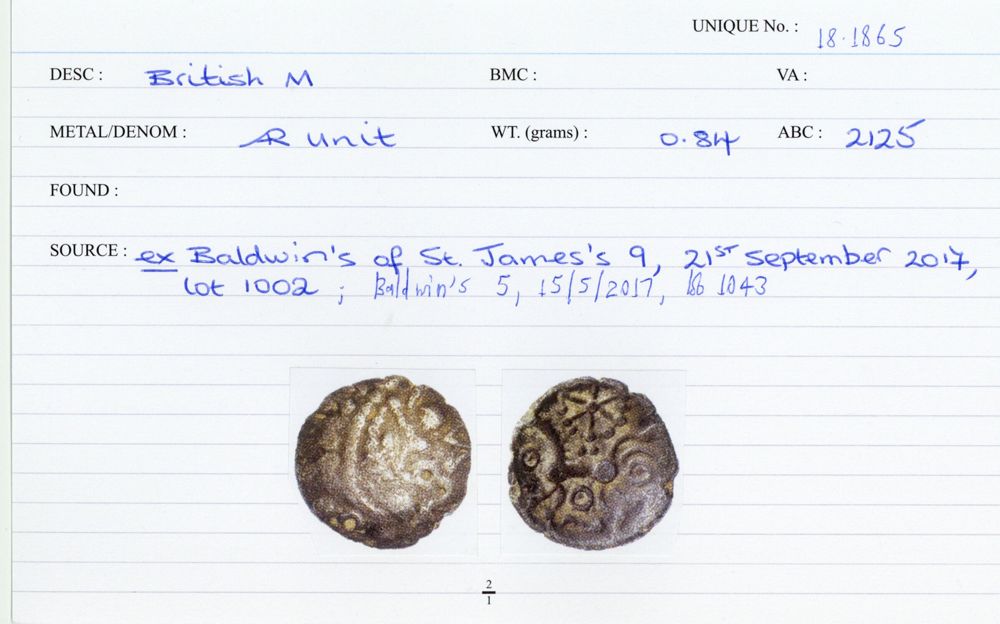 UNIQUE No. : 18.1865
DESC : British M BMC : VA :
METAL/DENOM : AR unit WT. (grams) : 0.84 ABC : 2125
FOUND :
SOURCE : ex Baldwin's of St. James's 9, 21ST September 2017,
Lot 1002 ; Baldwin's 5, 15/5/2017, 1043
2
1